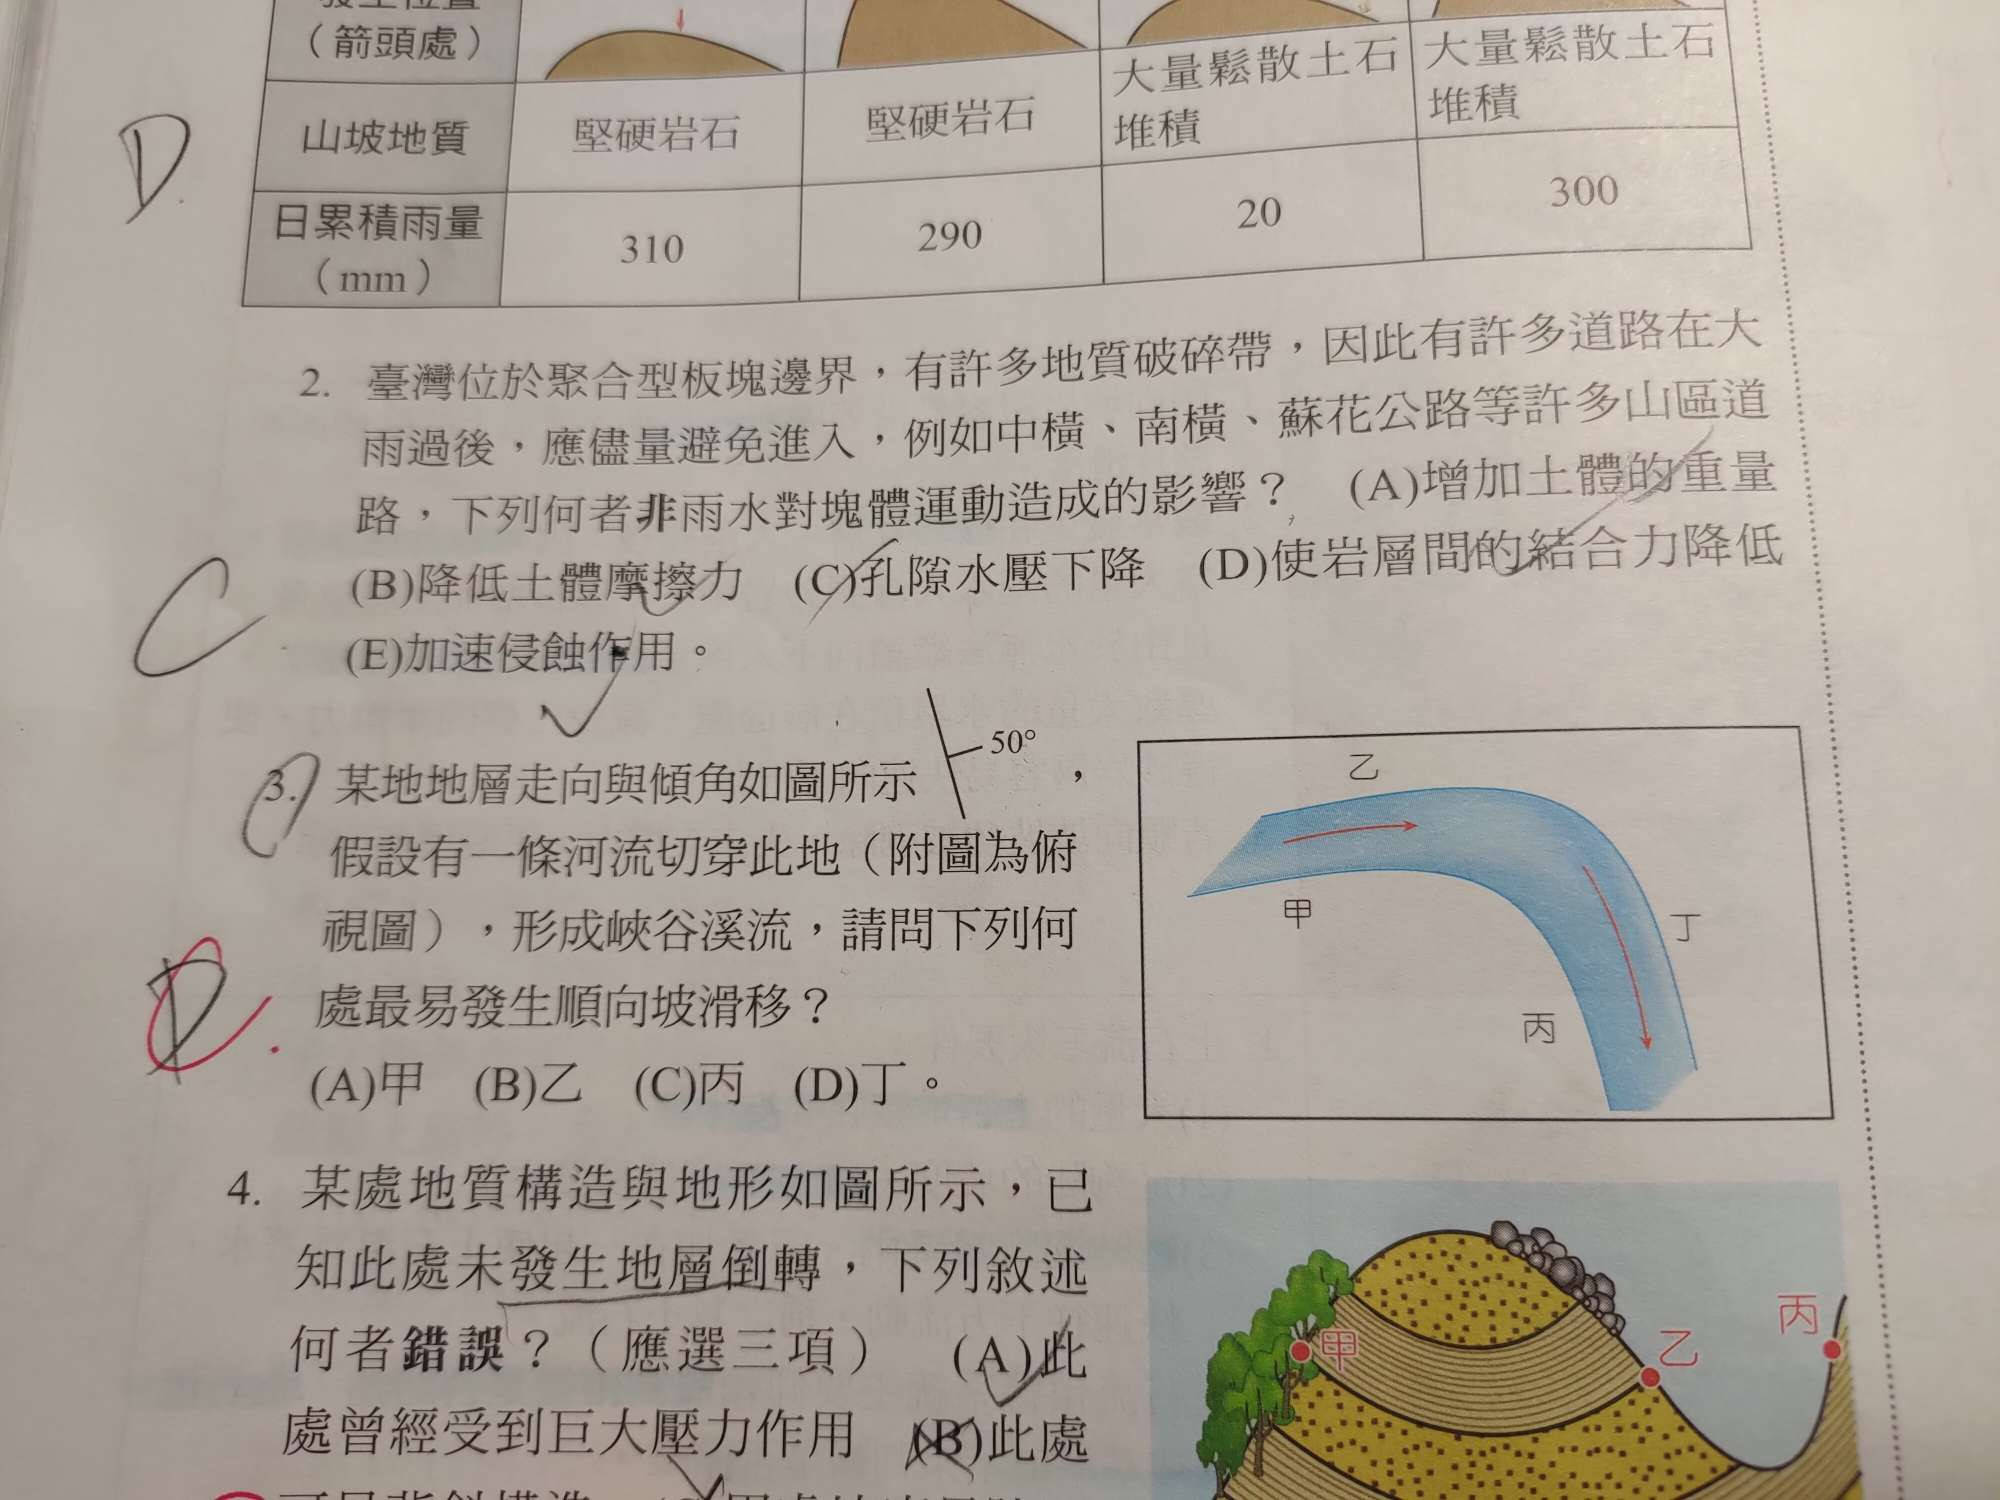 發生位置
（箭頭處）
山坡地質
堅硬岩石
堅硬岩石
大量鬆散土石
堆積
大量鬆散土石
堆積
日累積雨量
（mm）
310
290
20
300
D
2. 臺灣位於聚合型板塊邊界，有許多地質破碎帶，因此有許多道路在大
雨過後，應儘量避免進入，例如中橫、南橫、蘇花公路等許多山區道
路，下列何者非雨水對塊體運動造成的影響？ (A)增加土體的重量
(B)降低土體摩擦力 (C)孔隙水壓下降 (D)使岩層間的結合力降低
(E)加速侵蝕作用。
C
3. 某地地層走向與傾角如圖所示 50°，
假設有一條河流切穿此地（附圖為俯
視圖），形成峽谷溪流，請問下列何
處最易發生順向坡滑移？
(A)甲 (B)乙 (C)丙 (D)丁。
乙
甲
丁
丙
4. 某處地質構造與地形如圖所示，已
知此處未發生地層倒轉，下列敘述
何者錯誤？（應選三項） (A)此
處曾經受到巨大壓力作用 (B)此處
甲
乙
丙